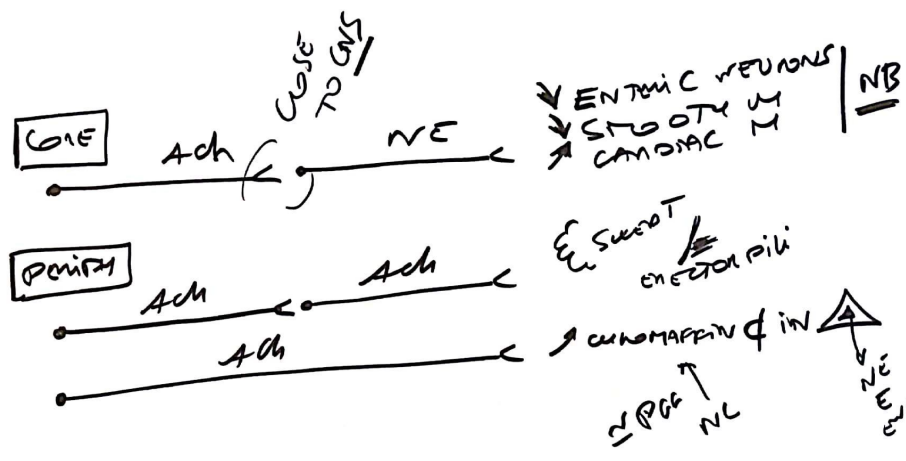 CLOSE
TO CNS
CORE
ACh
NE
ENTERIC NEURONS
SMOOTH M
CARDIAC M
NB
PERIPH
ACh
ACh
SWEAT
ERECTOR PILI
ACh
CHROMAFFIN ¢ IN
NE
E
N PGG
NC